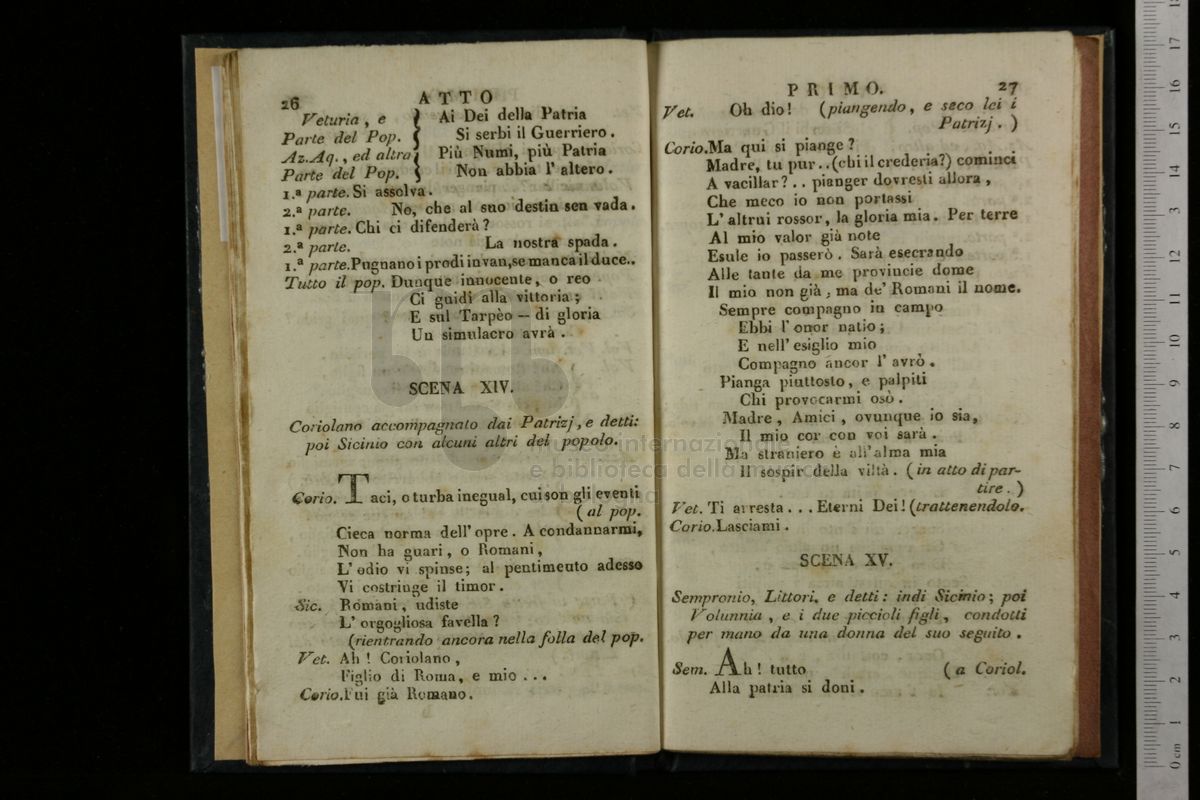 26
ATTO
Veturia, e } Ai Dei della Patria
Parte del Pop. } Si serbi il Guerriero.
Az. Aq., ed altra } Più Numi, più Patria
Parte del Pop. } Non abbia l' altero.
1.ª parte. Si assolva.
2.ª parte. No, che al suo destin sen vada.
1.ª parte. Chi ci difenderà?
2.ª parte. La nostra spada.
1.ª parte. Pugnano i prodi invan, se manca il duce..
Tutto il pop. Dunque innocente, o reo
Ci guidi alla vittoria;
E sul Tarpèo — di gloria
Un simulacro avrà.
SCENA XIV.
Coriolano accompagnato dai Patrizj, e detti:
poi Sicinio con alcuni altri del popolo.
Corio. Taci, o turba inegual, cui son gli eventi
(al pop.
Cieca norma dell' opre. A condannarmi,
Non ha guari, o Romani,
L' odio vi spinse; al pentimento adesso
Vi costringe il timor.
Sic. Romani, udiste
L' orgogliosa favella?
(rientrando ancora nella folla del pop.
Vet. Ah! Coriolano,
Figlio di Roma, e mio ...
Corio. Fui già Romano.
PRIMO. 27
Vet. Oh dio! (piangendo, e seco lei i
Patrizj.)
Corio. Ma qui si piange?
Madre, tu pur.. (chi il crederia?) cominci
A vacillar? .. pianger dovresti allora,
Che meco io non portassi
L' altrui rossor, la gloria mia. Per terre
Al mio valor già note
Esule io passerò. Sarà esecrando
Alle tante da me provincie dome
Il mio non già, ma de' Romani il nome.
Sempre compagno in campo
Ebbi l' onor natio;
E nell' esiglio mio
Compagno ancor l' avrò.
Pianga piuttosto, e palpiti
Chi provocarmi osò.
Madre, Amici, ovunque io sia,
Il mio cor con voi sarà.
Ma straniero è all' alma mia
Il sospir della viltà. (in atto di par-
tire.)
Vet. Ti arresta... Eterni Dei! (trattenendolo.
Corio. Lasciami.
SCENA XV.
Sempronio, Littori, e detti: indi Sicinio; poi
Volunnia, e i due piccioli figli, condotti
per mano da una donna del suo seguito.
Sem. Ah! tutto (a Coriol.
Alla patria si doni.
museo internazionale
e biblioteca della musica
di bologna
0 cm 1 2 3 4 5 6 7 8 9 10 11 12 13 14 15 16 17